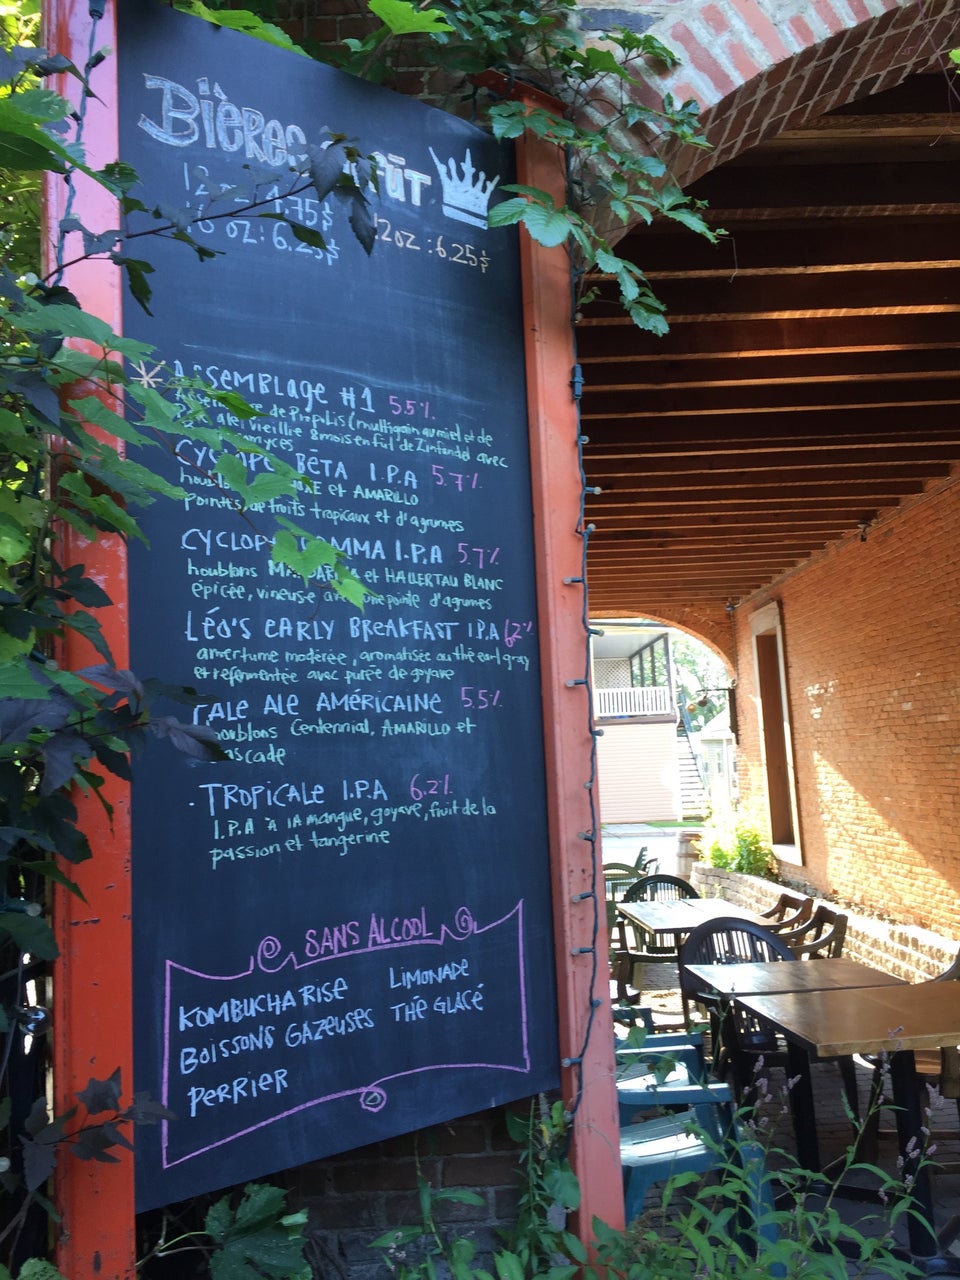 Bières fût
12 oz 4.75$
16 oz: 6.25$ 12oz: 6.25$
Assemblage #1 5.5%
de Propolis (multigrain au miel et de
pale ale) vieillie 8 mois en fût de Zinfandel avec
Cyclope Bêta I.P.A 5.7%
et AMARILLO
pointes de fruits tropicaux et d'agrumes
CYCLOPE GAMMA I.P.A 5.7%
houblons MANDARINA et HALLERTAU BLANC
épicée, vineuse avec une pointe d'agrumes
Léo's EARLY BREAKFAST I.P.A 6.2%
amertume modérée, aromatisée au thé earl gray
et refermentée avec purée de goyave
PALE ALE AMÉRICAINE 5.5%
houblons Centennial, AMARILLO et
cascade
TROPICALE I.P.A 6.2%
I.P.A à la mangue, goyave, fruit de la
passion et tangerine
SANS ALCOOL
KOMBUCHA RISE LIMONADE
BOISSONS GAZEUSES THÉ GLACÉ
PERRIER